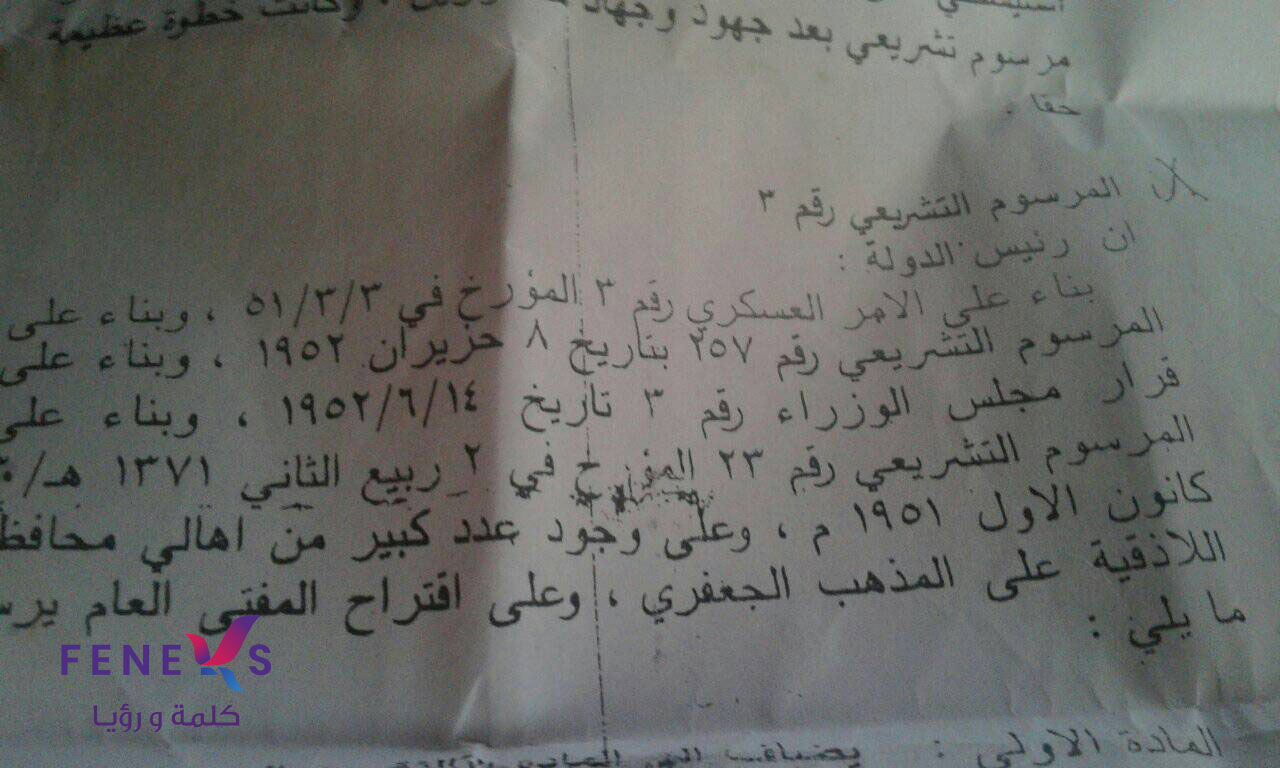 مرسوم تشريعي بعد جهود وجهاد وكانت خطوة عظيمة
حقا .
المرسوم التشريعي رقم ٣
ان رئيس الدولة :
بناء على الامر العسكري رقم ٢ المؤرخ في ٥١/٣/٣ ، وبناء على
المرسوم التشريعي رقم ٢٥٧ بتاريخ ٨ حزيران ١٩٥٢ ، وبناء على
قرار مجلس الوزراء رقم ٣ تاريخ ١٩٥٢/٦/١٤ ، وبناء على
المرسوم التشريعي رقم ٢٣ المؤرخ في ٢ ربيع الثاني ١٣٧١ هـ/
كانون الاول ١٩٥١ م ، وعلى وجود عدد كبير من اهالي
اللاذقية على المذهب الجعفري ، وعلى اقتراح المفتي العام
ما يلي :
المادة الاولى : يضاف الى
FENEKS
كلمة و رؤيا